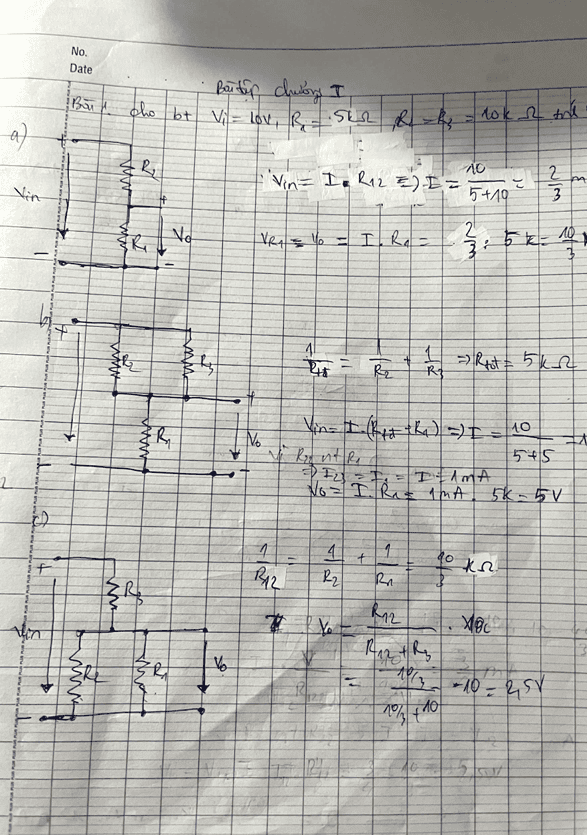 No.
Date
Bài tập chương I
Bài 1 cho bt Vi = 10V, R1 = 5kΩ, R2 = R3 = 10kΩ
a)
Vin
R2
R1
V0
+
-
Vin = I . R12 => I = 10 / (5+10) = 2/3 m
VR1 = V0 = I . R1 = 2/3 . 5k = 10/3
b)
+
R2
R3
R1
V0
+
-
1/Rtđ = 1/R2 + 1/R3 => Rtđ = 5kΩ
Vin = I.(Rtđ + R1) => I = 10 / (5+5) = 1
Vì R23 nt R1
=> I23 = I1 = I = 1mA
V0 = I . R1 = 1mA . 5k = 5V
c)
+
R3
Vin
R2
R1
V0
-
1/R12 = 1/R2 + 1/R1 = 10/3 kΩ
V0 = R12 / (R12 + R3) .
= 10/3 / (10/3 + 10) . 10 = 2,5V